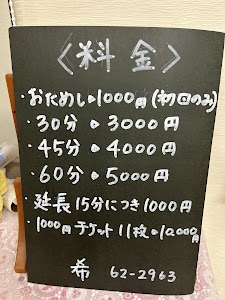 〈料金〉
・おためし▸1000円(初回のみ)
・30分▸3000円
・45分▸4000円
・60分▸5000円
・延長15分につき1000円
・1000円チケット11枚▸10,000円
希 62-2963